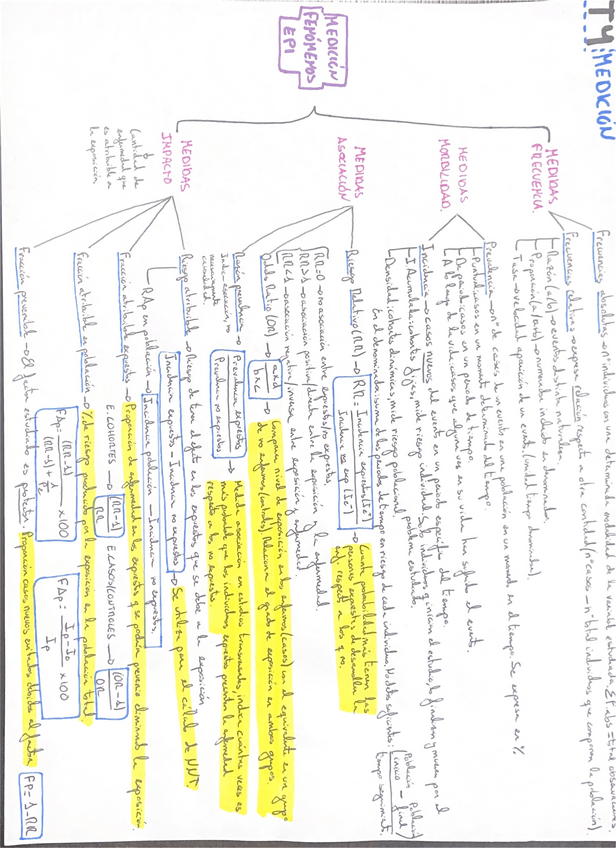 T4: MEDICIÓN
MEDICIÓN
FENÓMENOS
EPI
MEDIDAS
FRECUENCIA.
Frecuencias absolutas → nº individuos en una determinada modalidad de variable estudiada. Σ F. abs = total observaciones.
Frecuencias relativas → expresa relación respecto a otra cantidad (nº casos – nº total individuos que componen la población).
Razón (a/b) → eventos distinta naturaleza
Proporción (a/a+b) → numerador incluido en denominador.
Tasa → velocidad aparición de un evento (unidad tiempo denominador).
MEDIDAS
MORBILIDAD.
Prevalencia → nº de casos de un evento en una población en un momento en el tiempo. Se expresa en %
Puntual: casos en un momento determinado del tiempo.
De periodo: casos en un periodo de tiempo.
A lo largo de la vida: casos que alguna vez en su vida han sufrido el evento.
Incidencia → casos nuevos del evento en un periodo específico del tiempo.
I Acumulada: cohortes fijas, mide riesgo individual. Solo individuos q inician el estudio, lo finalizan y mueren por el problema estudiado.
Densidad: cohortes dinámicas, mide riesgo poblacional.
En el denominador: suma de los periodos de tiempo en riesgo de cada individuo. No datos suficientes:
Población inicio
Población final
tiempo seguimiento.
MEDIDAS
ASOCIACIÓN
Riesgo Relativo (RR) → RR = Incidencia expuestos (Ie) / Incidencia no exp (Io)
Cuanta probabilidad más tienen las personas expuestas de desarrollar la enf. respecto a los q no.
RR=0 → no asociación entre expuestos/no expuestos.
RR>1 → asociación positiva/directa entre la exposición y la enfermedad
RR<1 → asociación negativa/inversa entre exposición y enfermedad
Odds Ratio (OR) → a×d / b×c → Compara nivel de exposición en los enfermos (casos) con el equivalente en un grupo
de no enfermos (controles). Relaciona el grado de exposición en ambos grupos.
Razón prevalencia → Prevalencia expuestos / Prevalencia no expuestos → Mide la asociación en estudios transversales, indica cuántas veces es
más probable que los individuos expuestos presenten la enfermedad
respecto a los no expuestos
Indica asociación, no
necesariamente
causalidad
MEDIDAS
IMPACTO
Cantidad de
enfermedad que
es atribuible a
la exposición
Riesgo atribuible → Riesgo de tener el efecto en los expuestos que se debe a la exposición
Incidencia expuestos – Incidencia no expuestos → Se utiliza para el cálculo de NNT.
RAp en población → Incidencia población – Incidencia no expuestos.
Fracción atribuible expuestos → Proporción de enfermedad en los expuestos q se podría prevenir eliminando la exposición.
E. COHORTES → (RR-1) / RR
E CASOS/CONTROLES → (OR-1) / OR
Fracción atribuible en población → % de riesgo producido por la exposición en la población total.
FAp = (RR-1) / (RR-1) + 1/Pe x 100
FAp = Ip - Io / Ip x 100
Fracción prevenible → El factor estudiado es protector. Proporción casos nuevos evitados debidos al factor
FP = 1-RR